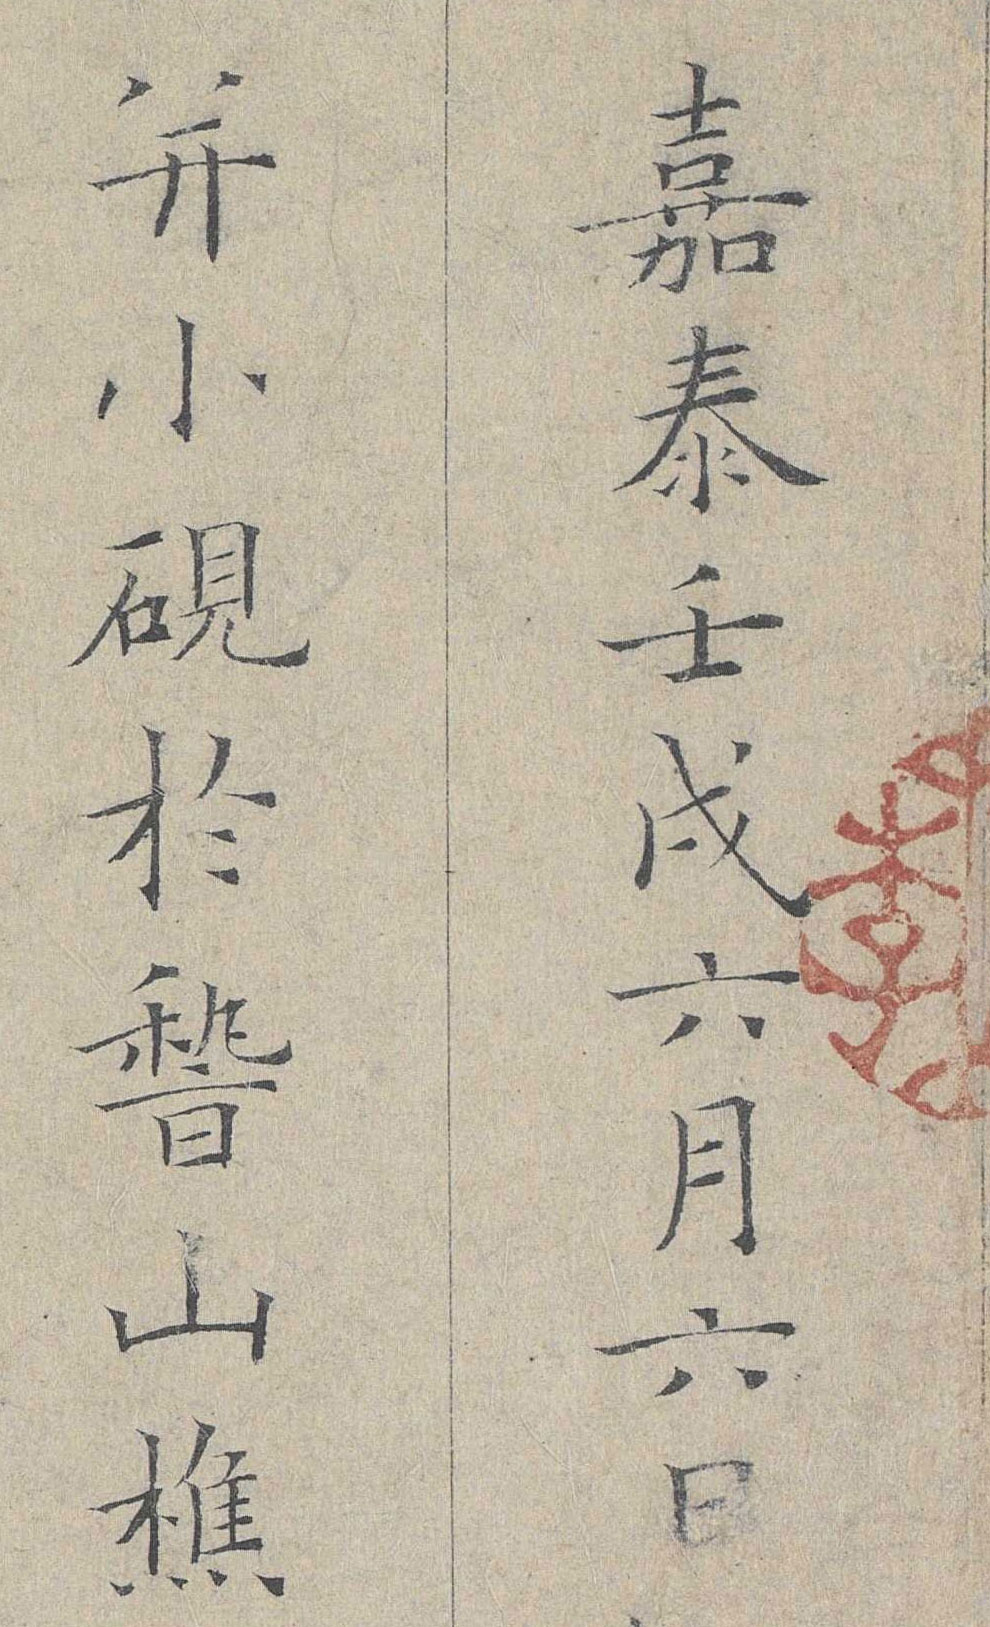 嘉泰壬戌六月六日
并小硯於嵆山樵